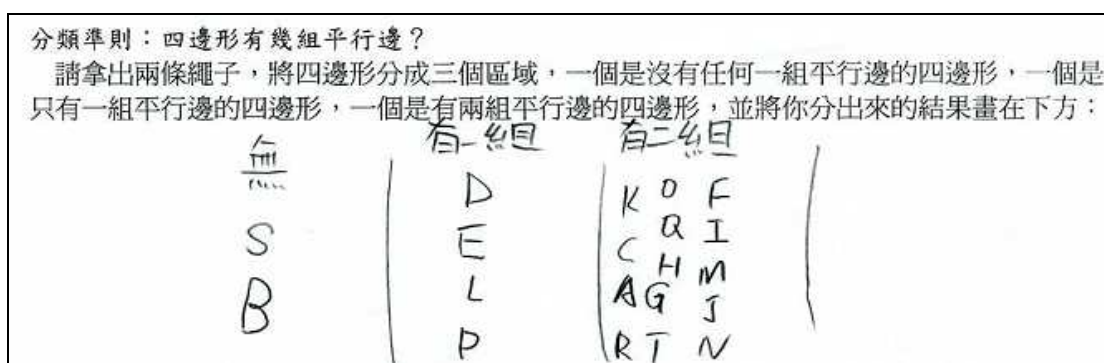 分類準則：四邊形有幾組平行邊？
請拿出兩條繩子，將四邊形分成三個區域，一個是沒有任何一組平行邊的四邊形，一個是
只有一組平行邊的四邊形，一個是有兩組平行邊的四邊形，並將你分出來的結果畫在下方：
無 有一組 有二組
D K O F
S E C Q I
B L A H M
P R G J
T N